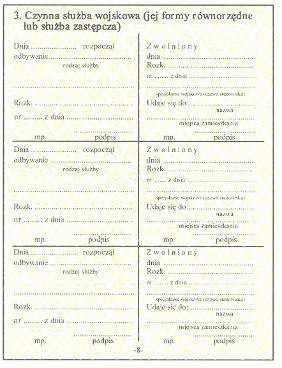 3. Czynna służba wojskowa (jej formy równorzędne
lub służba zastępcza)
Dnia .................. rozpoczął
odbywanie ..............................
rodzaj służby
Rozk. ..............................
nr ......... z dnia ..................
mp. podpis
Zwolniony
dnia ..............................
Rozk. ..............................
nr ......... z dnia ..................
Udaje się do: ..................
nazwa
miejsca zamieszkania
mp. podpis
Dnia .................. rozpoczął
odbywanie ..............................
rodzaj służby
Rozk. ..............................
nr ......... z dnia ..................
mp. podpis
Zwolniony
dnia ..............................
Rozk. ..............................
nr ......... z dnia ..................
Udaje się do: ..................
nazwa
miejsca zamieszkania
mp. podpis
Dnia .................. rozpoczął
odbywanie ..............................
rodzaj służby
Rozk. ..............................
nr ......... z dnia ..................
mp. podpis
Zwolniony
dnia ..............................
Rozk. ..............................
nr ......... z dnia ..................
Udaje się do: ..................
nazwa
miejsca zamieszkania
mp. podpis
-8-